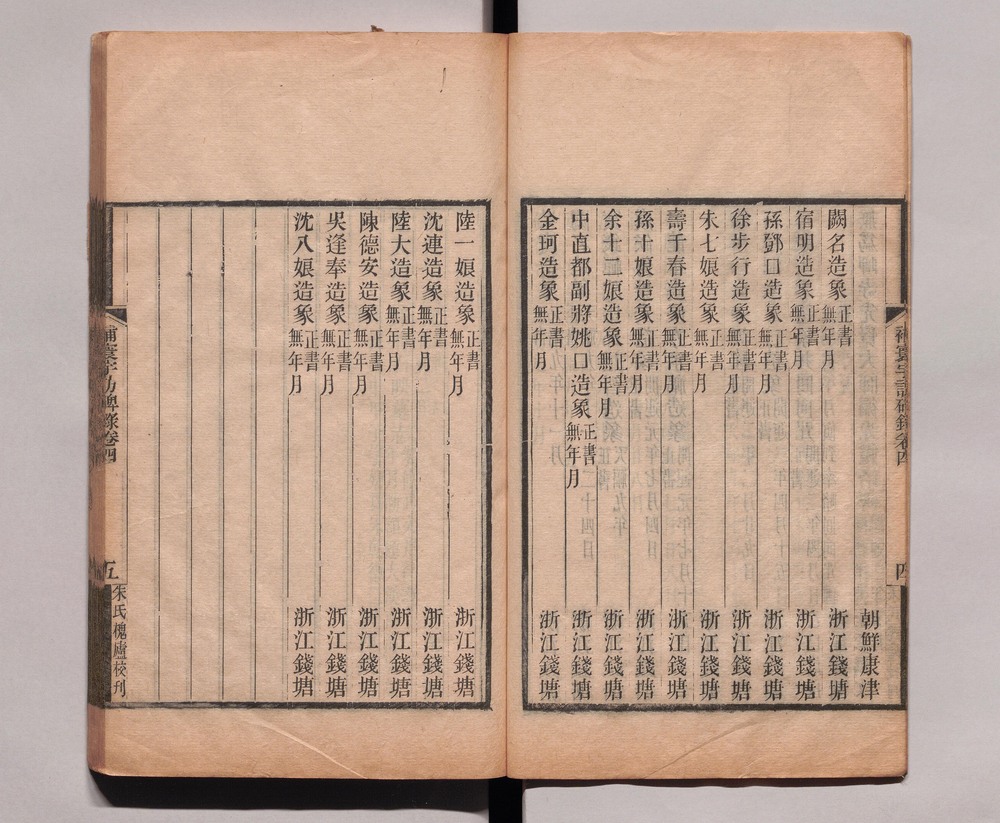 朝鮮康津
闕名造象 正書 無年月 浙江錢塘
宿明造象 正書 無年月 浙江錢塘
孫鄧口造象 正書 無年月 浙江錢塘
徐步行造象 正書 無年月 浙江錢塘
朱七娘造象 正書 無年月 浙江錢塘
壽千春造象 正書 無年月 浙江錢塘
孫十娘造象 正書 無年月 浙江錢塘
余十二娘造象 正書 無年月 浙江錢塘
中直都副將姚口造象 正書 無年月 浙江錢塘
金珂造象 正書 無年月 浙江錢塘
陸一娘造象 正書 無年月 浙江錢塘
沈連造象 正書 無年月 浙江錢塘
陸大造象 正書 無年月 浙江錢塘
陳德安造象 正書 無年月 浙江錢塘
吳逢奉造象 正書 無年月 浙江錢塘
沈八娘造象 正書 無年月 浙江錢塘
補寰宇訪碑錄卷四
四
補寰宇訪碑錄卷四
五
朱氏槐廬校刊